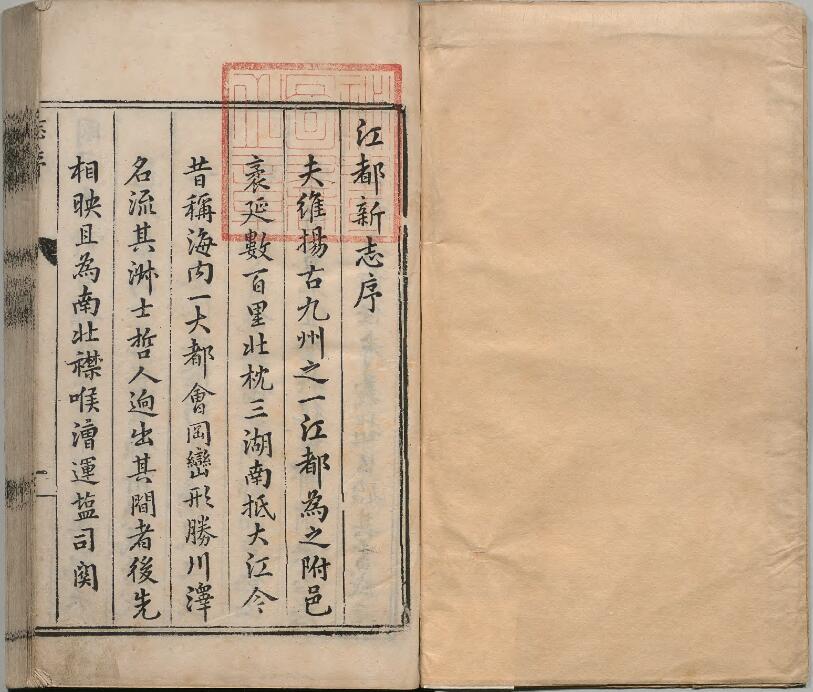 江都新志序
夫維揚古九州之一江都為之附邑
袤延數百里北枕三湖南抵大江今
昔稱海内一大都會岡巒形勝川澤
名流其淋士哲人逈出其間者後先
相映且為南北襟喉漕運塩司関
志序